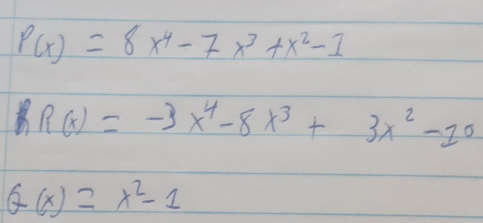 P(x) = 8x⁴ - 7x³ + x² - 1
R(x) = -3x⁴ - 8x³ + 3x² - 10
Q(x) = x² - 1